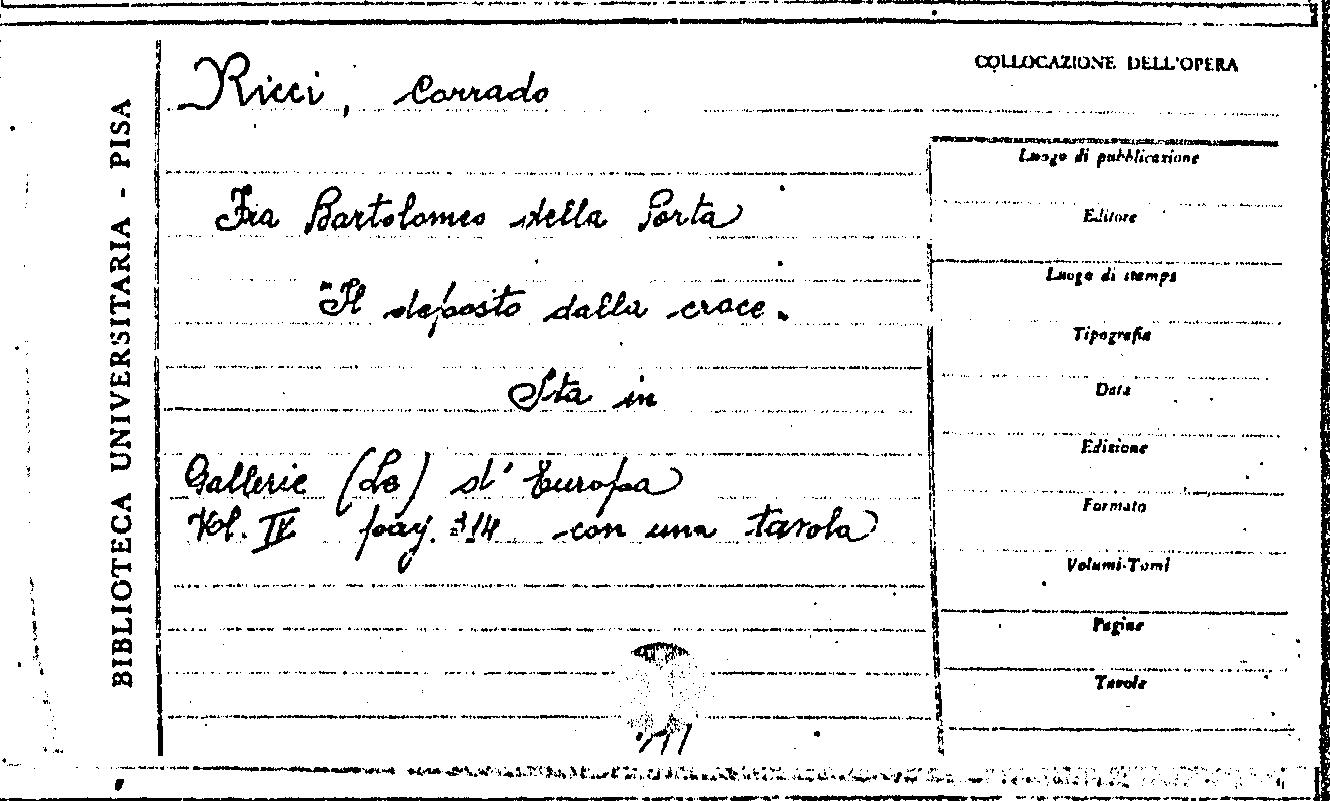 COLLOCAZIONE DELL'OPERA
Ricci, Corrado
Fra Bartolomeo della Porta
"Il deposto dalla croce.
Sta in
Gallerie (Le) d'Europa
Vol. IV pag. 314 con una tavola
BIBLIOTECA UNIVERSITARIA - PISA
Luogo di pubblicazione
Editore
Luogo di stampa
Tipografia
Data
Edizione
Formato
Volumi-Tomi
Pagine
Tavole